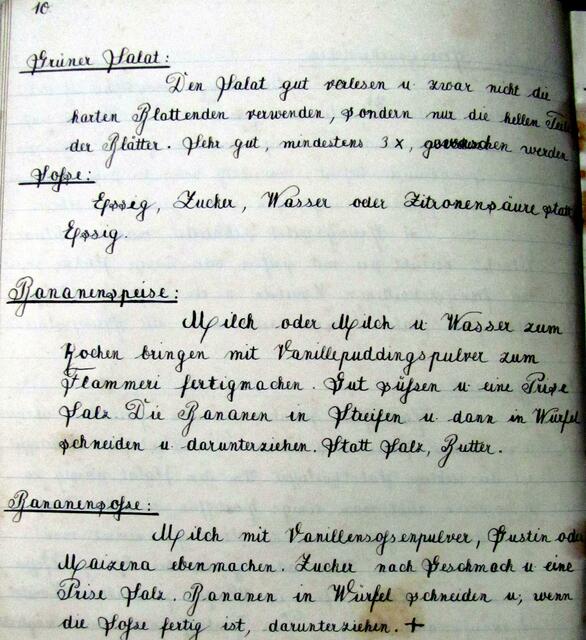 10
Grüner Salat:
Den Salat gut verlesen u. zwar nicht die
harten Blattenden verwenden, sondern nur die hellen Teile
der Blätter. Sehr gut, mindestens 3x, gewaschen werden
Soße:
Essig, Zucker, Wasser oder Zitronensäure statt
Essig.
Bananenspeise:
Milch oder Milch u. Wasser zum
Kochen bringen mit Vanillepuddingspulver zum
Flammeri fertigmachen. Gut süßen u. eine Prise
Salz. Die Bananen in Streifen u. dann in Würfel
schneiden u. darunterziehen. Statt Salz, Butter.
Bananensoße:
Milch mit Vanillensosenpulver, Gustin oder
Maizena ebenmachen. Zucker nach Geschmack u. eine
Prise Salz. Bananen in Würfel schneiden u, wenn
die Soße fertig ist, darunterziehen. +